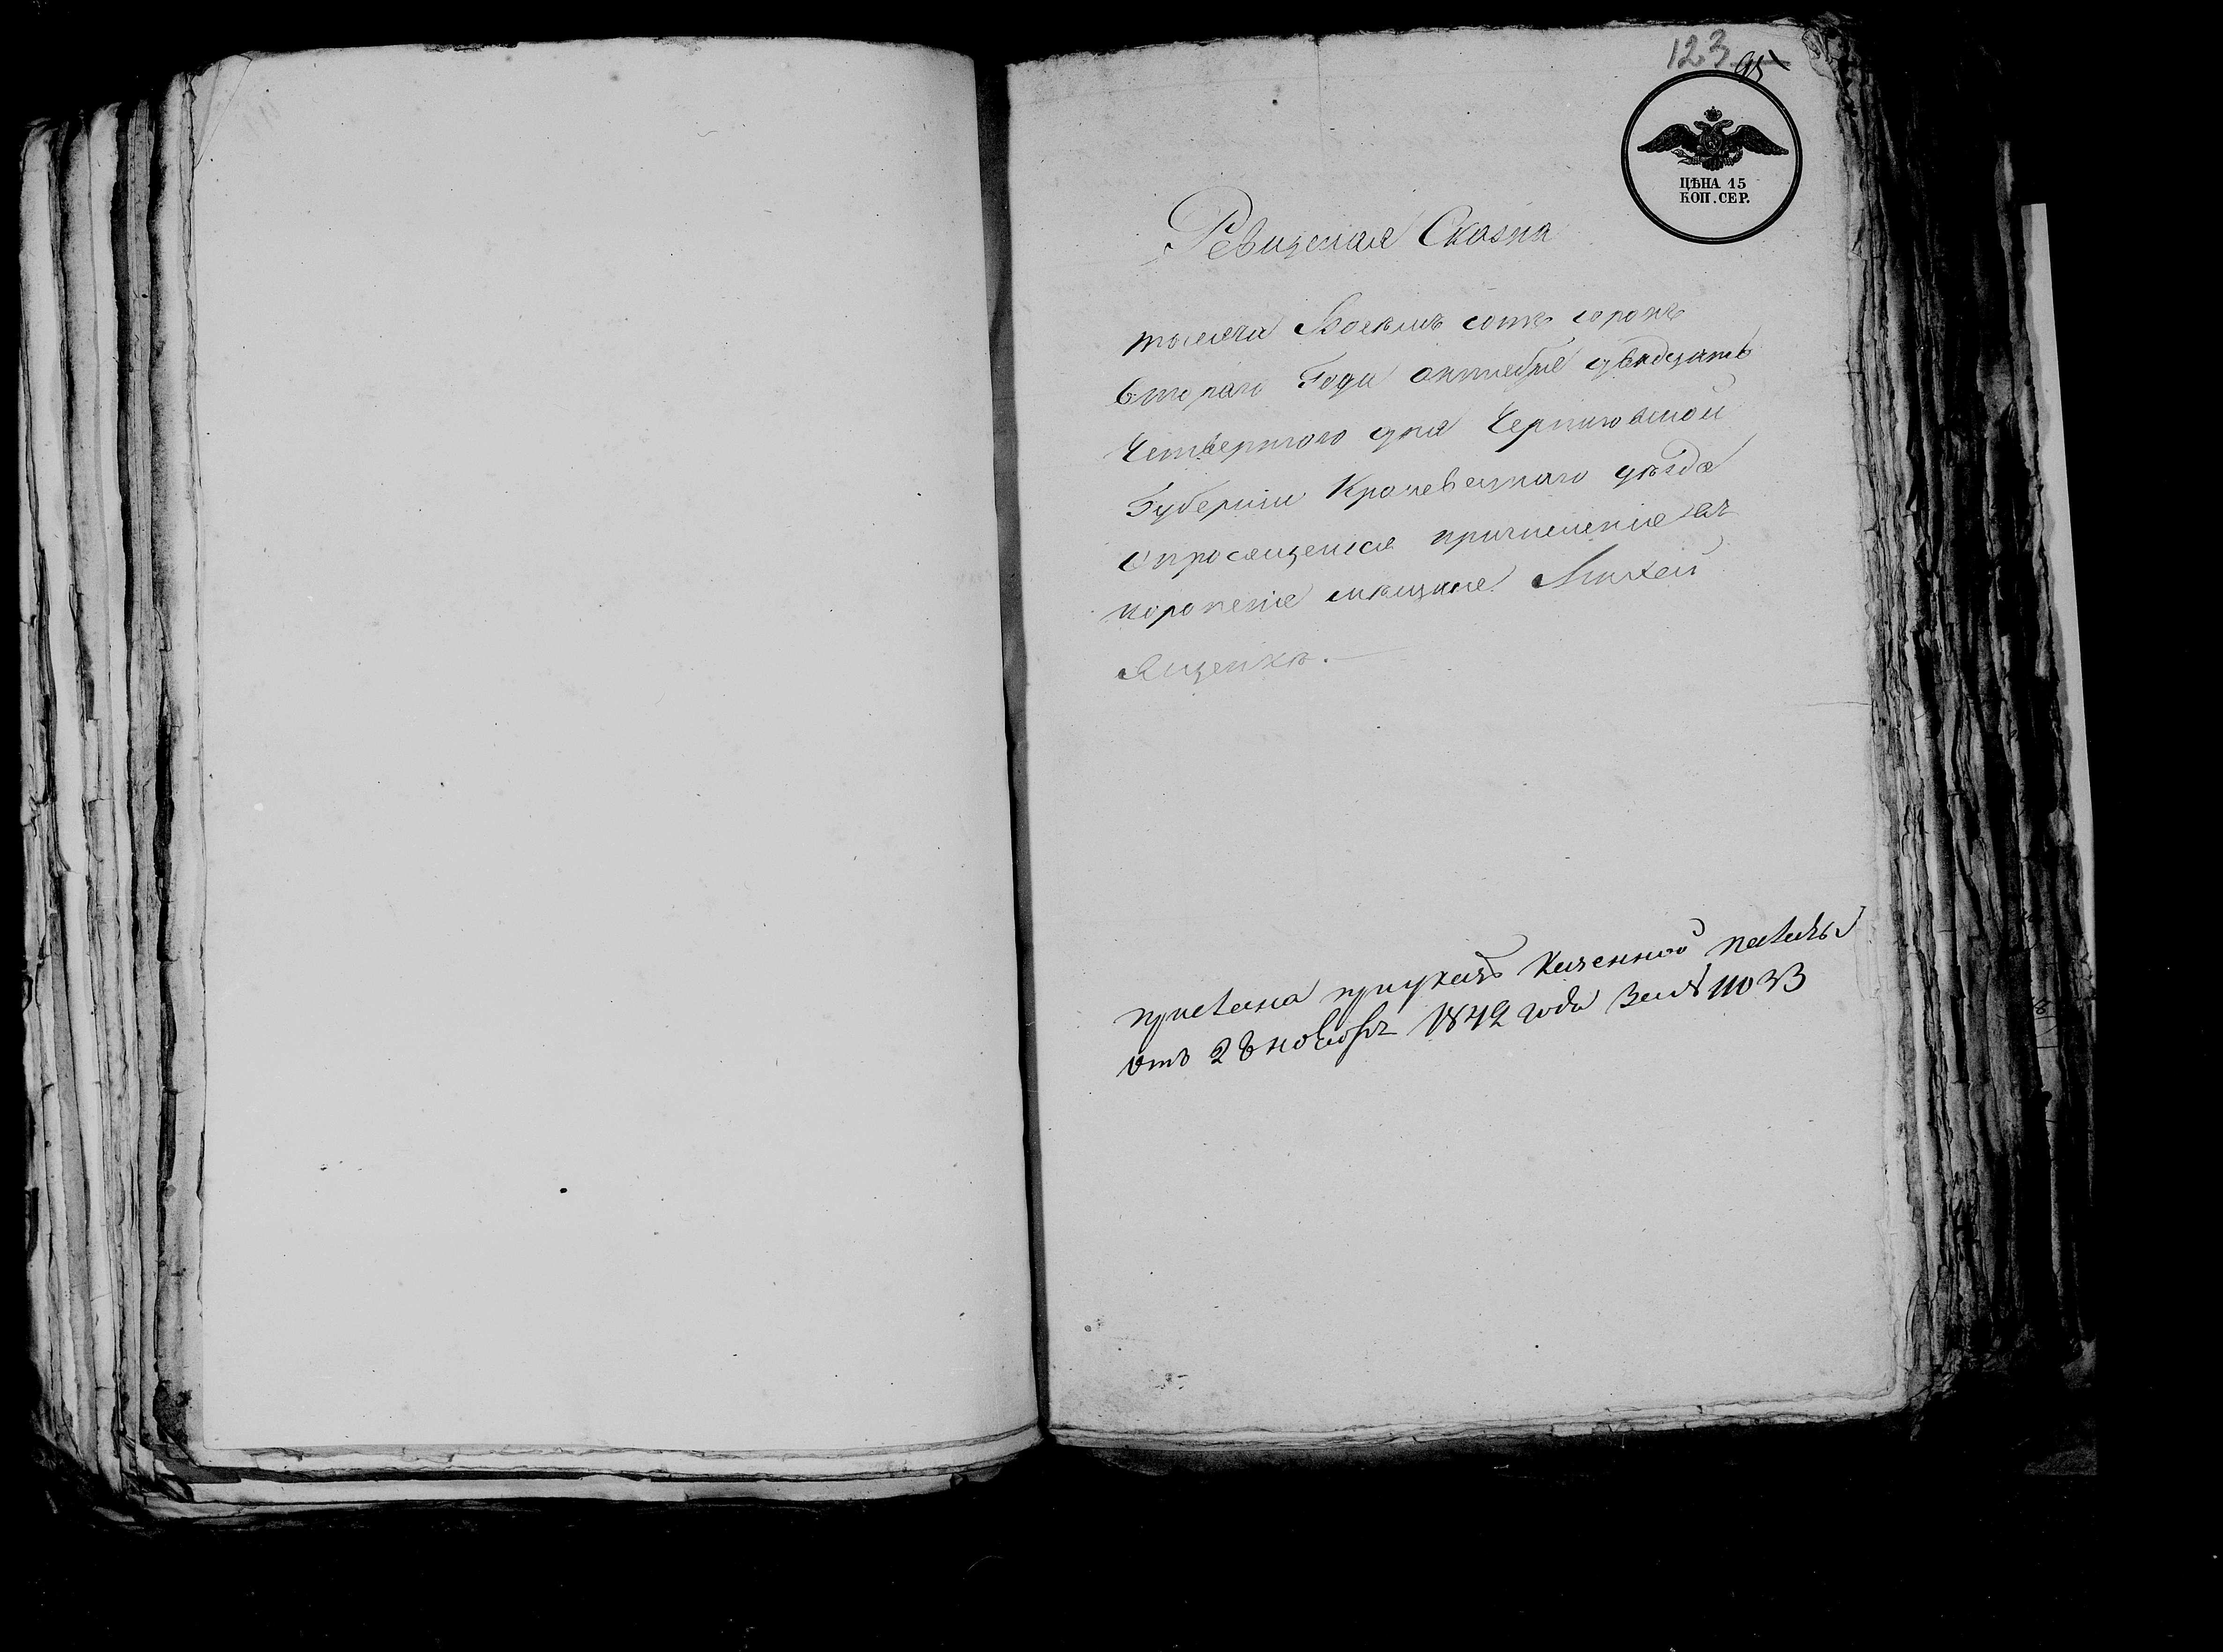 123 95
ЦѢНА 15
КОП. СЕР.
Ревизская Сказка
тысяча Восемъ сотъ сорокъ
втораго Года октября двадцать
Четвертого дня Черниговской
Губернии Кролевецкаго уѣзда
о просящемся причисления въ
коропские мещане
Ященкѣ.
прислана при указѣ Казенной палаты
отъ 28 ноября 1842 года за № 11033